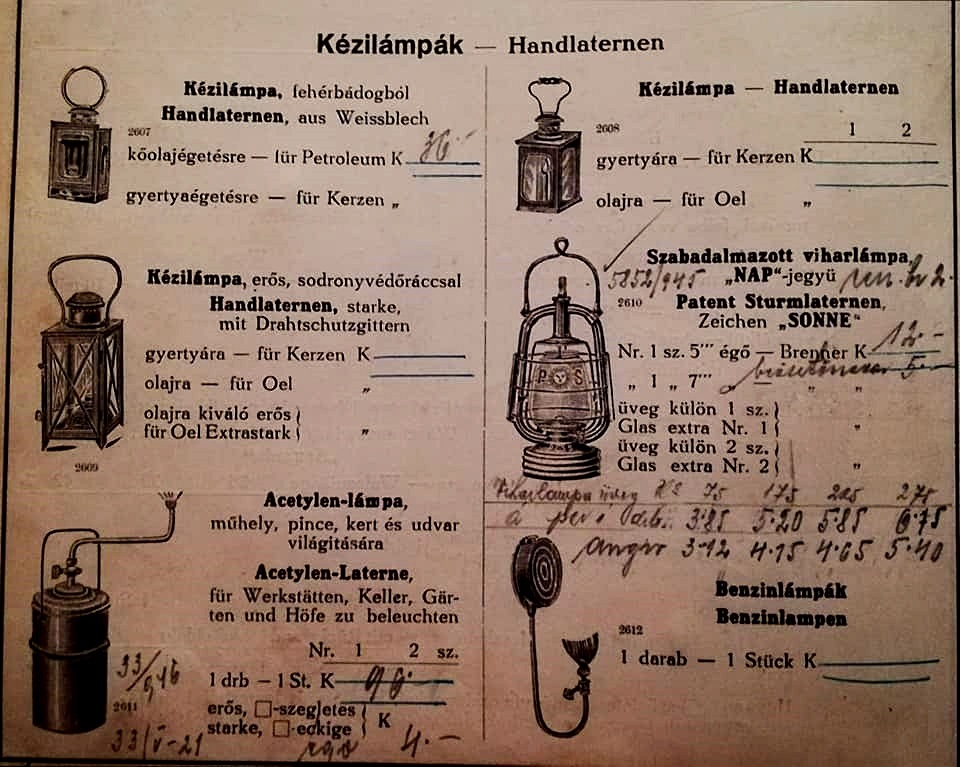 Kézilámpák — Handlaternen
Kézilámpa, fehérbádogból
Handlaternen, aus Weissblech
2607
kőolajégetésre — für Petroleum K 36·
gyertyaégetésre — für Kerzen „
Kézilámpa — Handlaternen
2608
1 2
gyertyára — für Kerzen K
olajra — für Oel „
Kézilámpa, erős, sodronyvédőráccsal
Handlaternen, starke,
mit Drahtschutzgittern
gyertyára — für Kerzen K
olajra — für Oel „
olajra kiváló erős
für Oel Extrastark „
2609
Szabadalmazott viharlámpa,
5852/945 „NAP“-jegyü
2610 Patent Sturmlaternen,
Zeichen „SONNE“
Nr. 1 sz. 5''' égő — Brenner K
„ 1 „ 7''' „ „
üveg külön 1 sz.
Glas extra Nr. 1 „
üveg külön 2 sz.
Glas extra Nr. 2 „
P S
Viharlámpa üveg 75 175 275
3·85 5·20 5·85 6·75
3·12 4·15 4·65 5·40
Acetylen-lámpa,
műhely, pince, kert és udvar
világitására
Acetylen-Laterne,
für Werkstätten, Keller, Gär-
ten und Höfe zu beleuchten
Nr. 1 2 sz.
33/946
1 drb — 1 St. K 96·
2611
erős, □-szegletes
starke, □-eckige K
33/V-21 4.—
Benzinlámpák
Benzinlampen
2612
1 darab — 1 Stück K